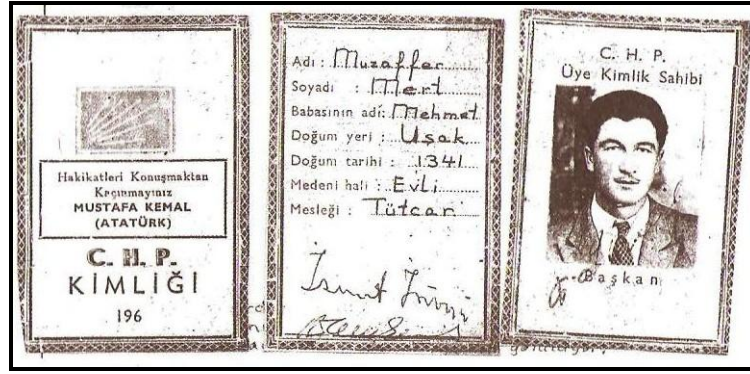 Hakikatleri Konuşmaktan
Kaçınmayınız
MUSTAFA KEMAL
(ATATÜRK)
C. H. P.
KİMLİĞİ
196
Adı : Muzaffer
Soyadı : Mert
Babasının adı: Mehmet
Doğum yeri : Uşak
Doğum tarihi : 1341
Medeni hali : Evli
Mesleği : Tütcar
İsmet İnönü
C. H. P.
Üye Kimlik Sahibi
Başkan